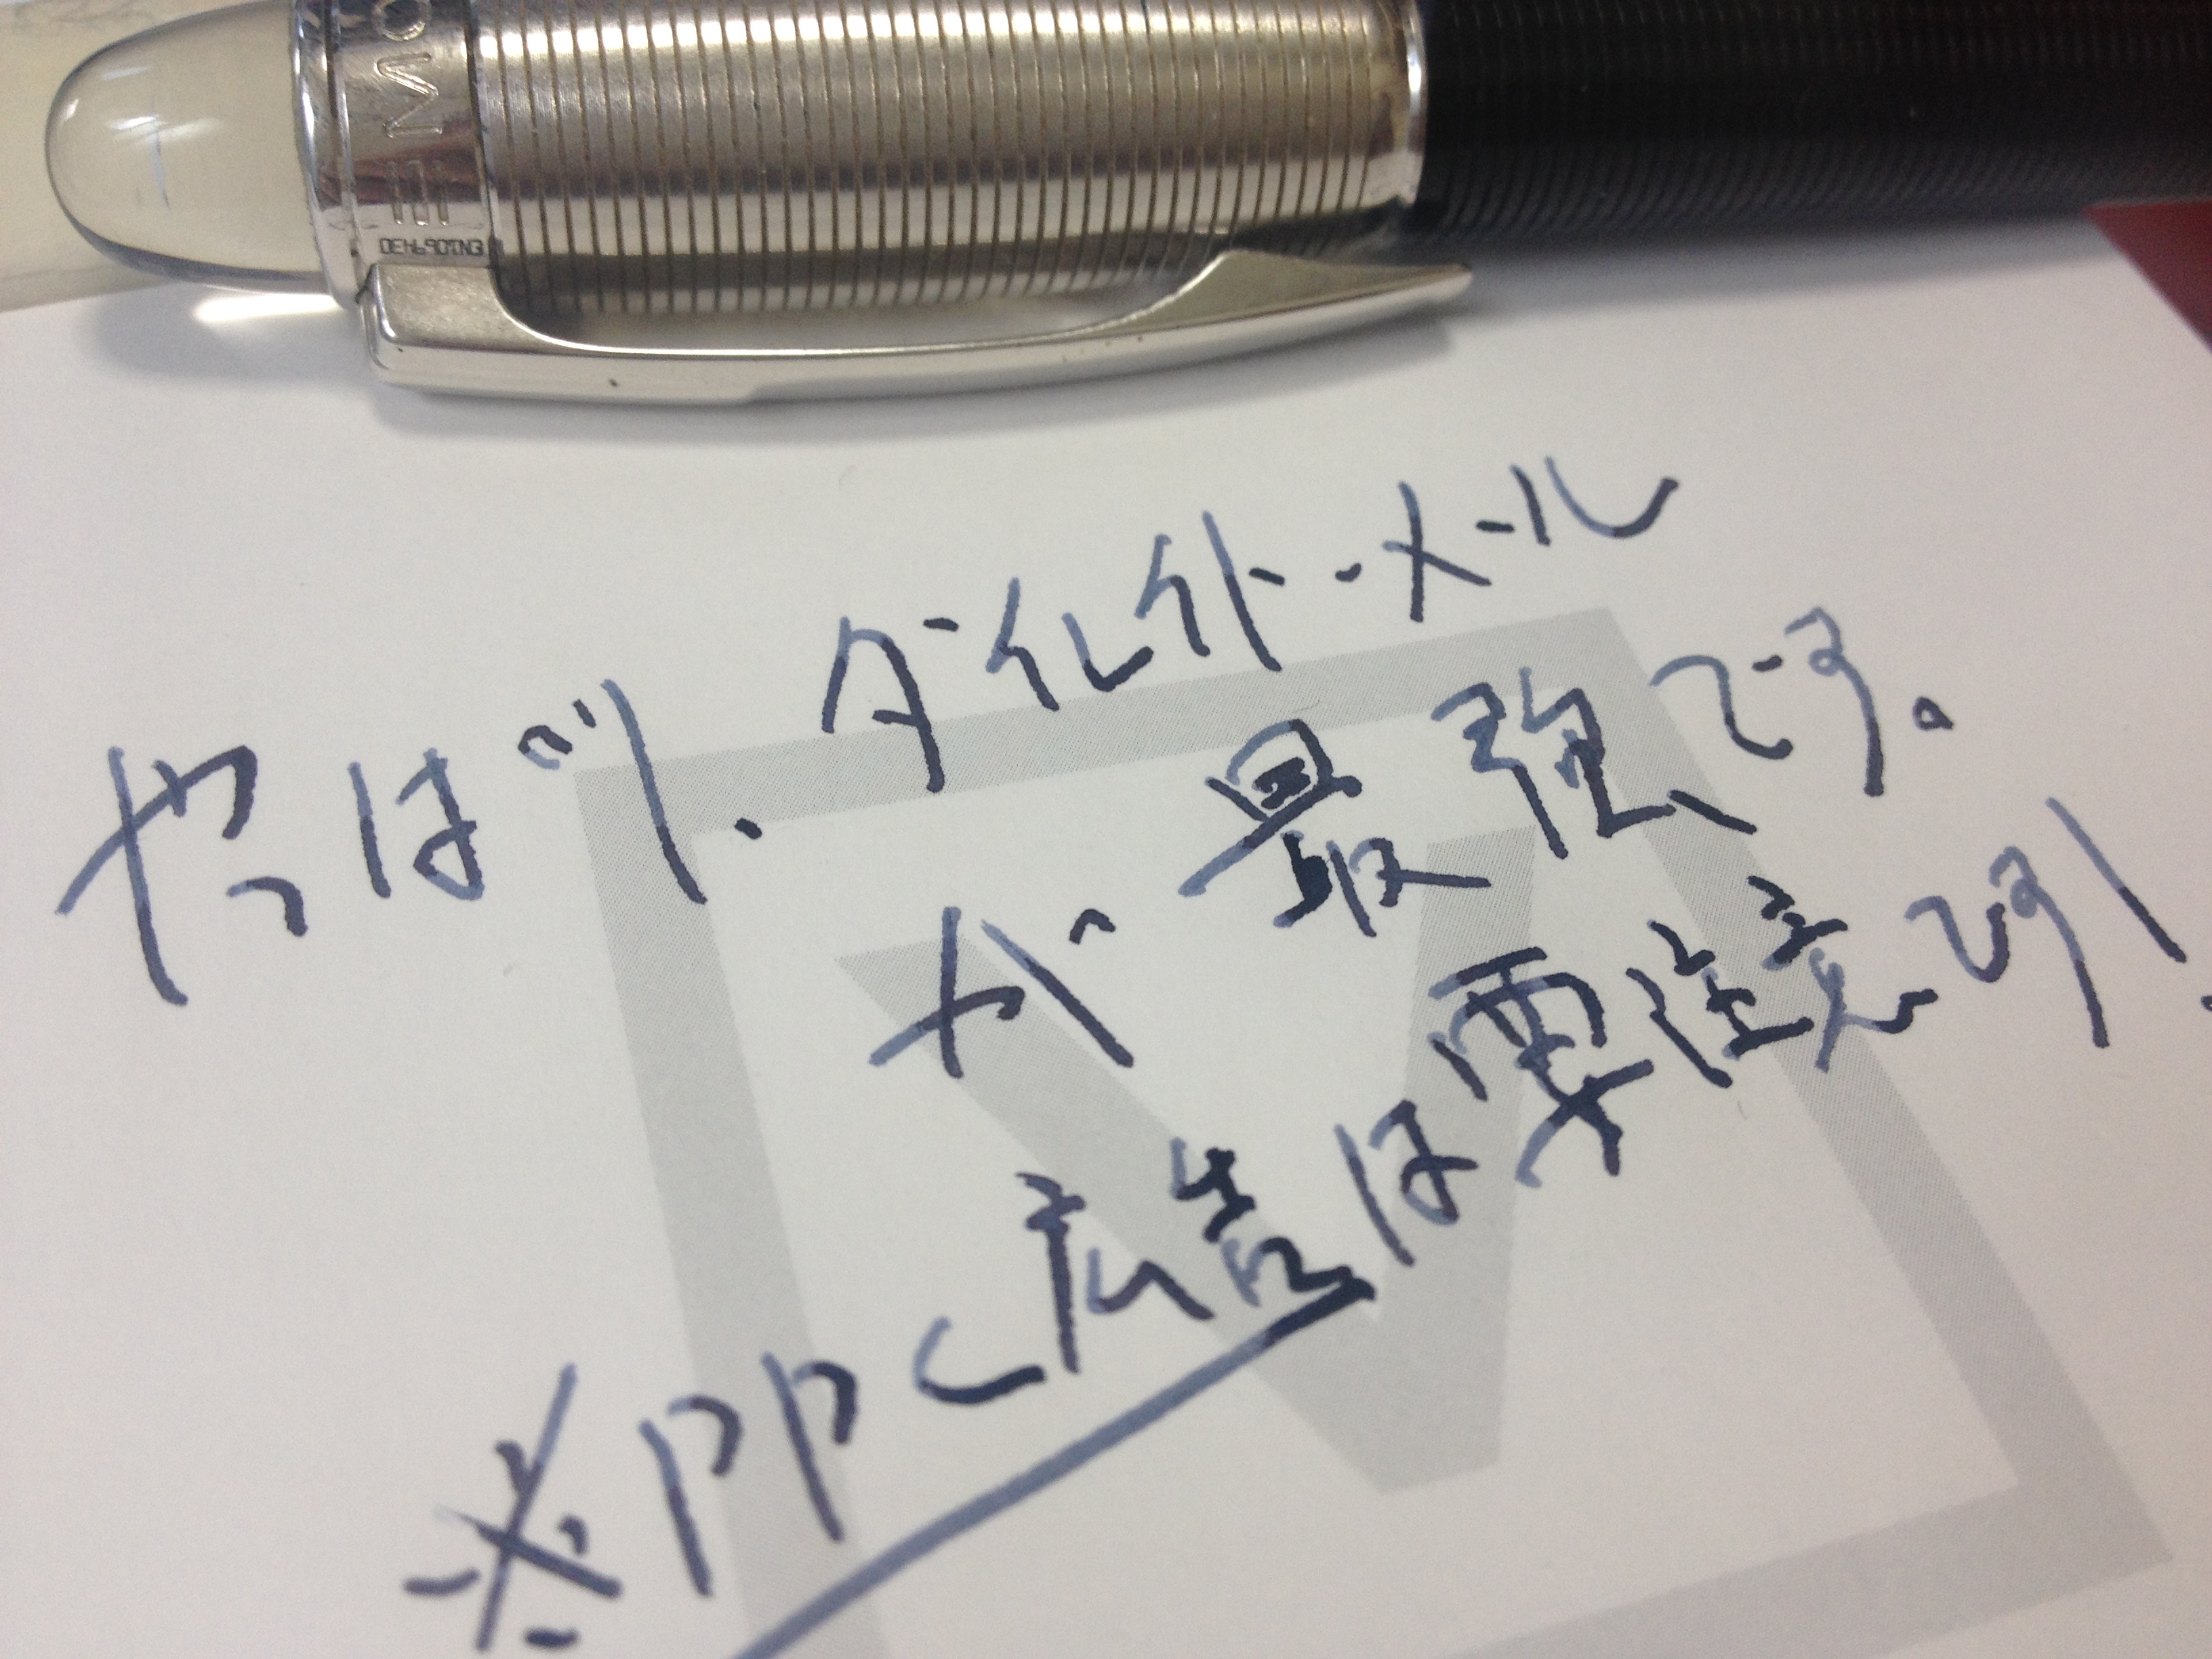 MO
DEH690TN3
やっぱり、ダイレクトメール
が最強です。
※PPC広告は要注意です!